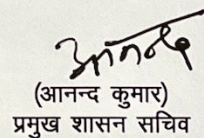 आनन्द
(आनन्द कुमार)
प्रमुख शासन सचिव